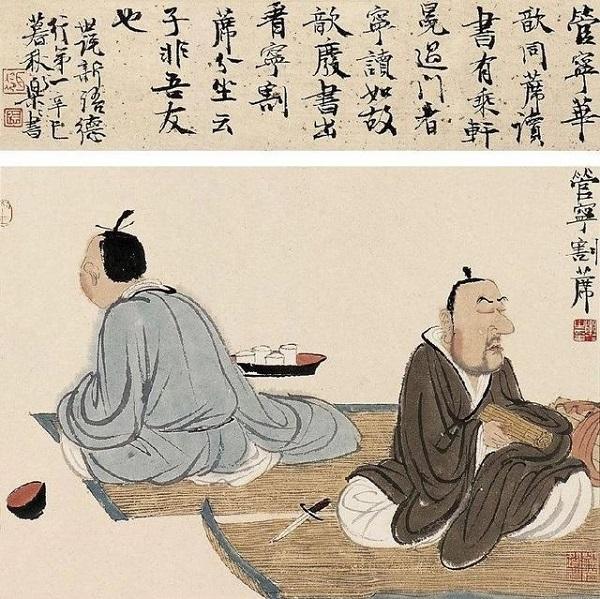 管寧華
歆同蓆讀
書有乘軒
冕過門者
寧讀如故
歆廢書出
看寧割
蓆分坐云
子非吾友
也
世說新語德
行第一辛巳
暮秋樂書
管寧割蓆